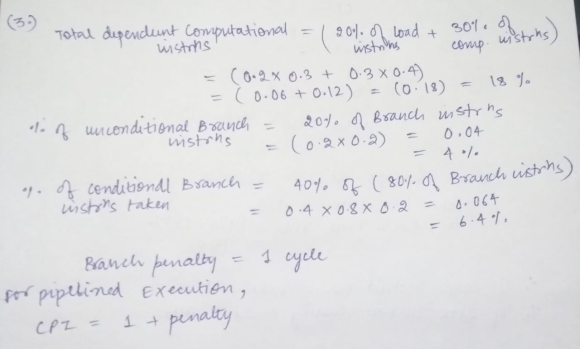 (3.) Total dependent Computational instrns = (20% of load instrns + 30% of comp. instrns)
= (0.2 x 0.3 + 0.3 x 0.4)
= (0.06 + 0.12) = (0.18) = 18 %
% of unconditional Branch instrns = 20% of Branch instrns
= (0.2 x 0.2) = 0.04
= 4 %
% of conditional Branch instrns taken = 40% of (80% of Branch instrns)
= 0.4 x 0.8 x 0.2 = 0.064
= 6.4 %.
Branch penalty = 1 cycle
For pipelined Execution,
CPI = 1 + penalty